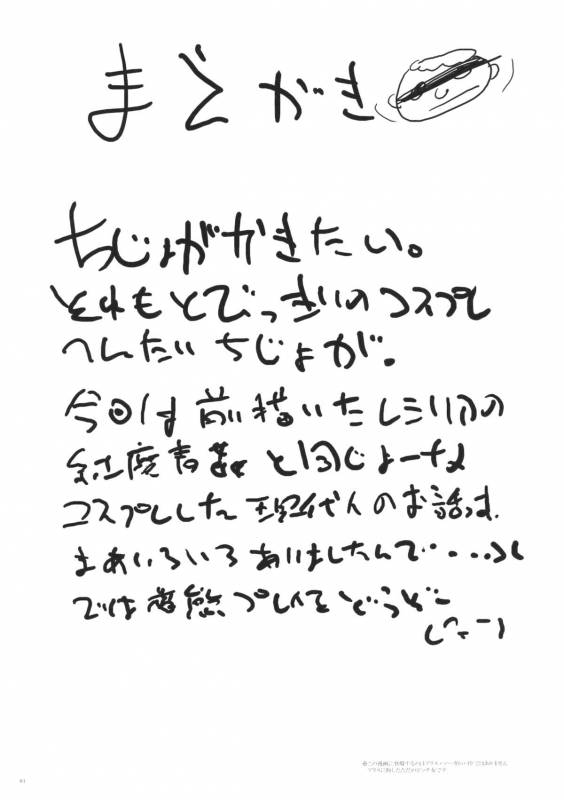 まえがき
ちじょがかきたい。
それもとびっきりのコスプレ
へんたいちじょが。
今回は前描いたレミリアの
と同じよーな
コスプレした現代人のお話っす
まあいろいろありましたんで・・・
では変態プレイをどうぞー